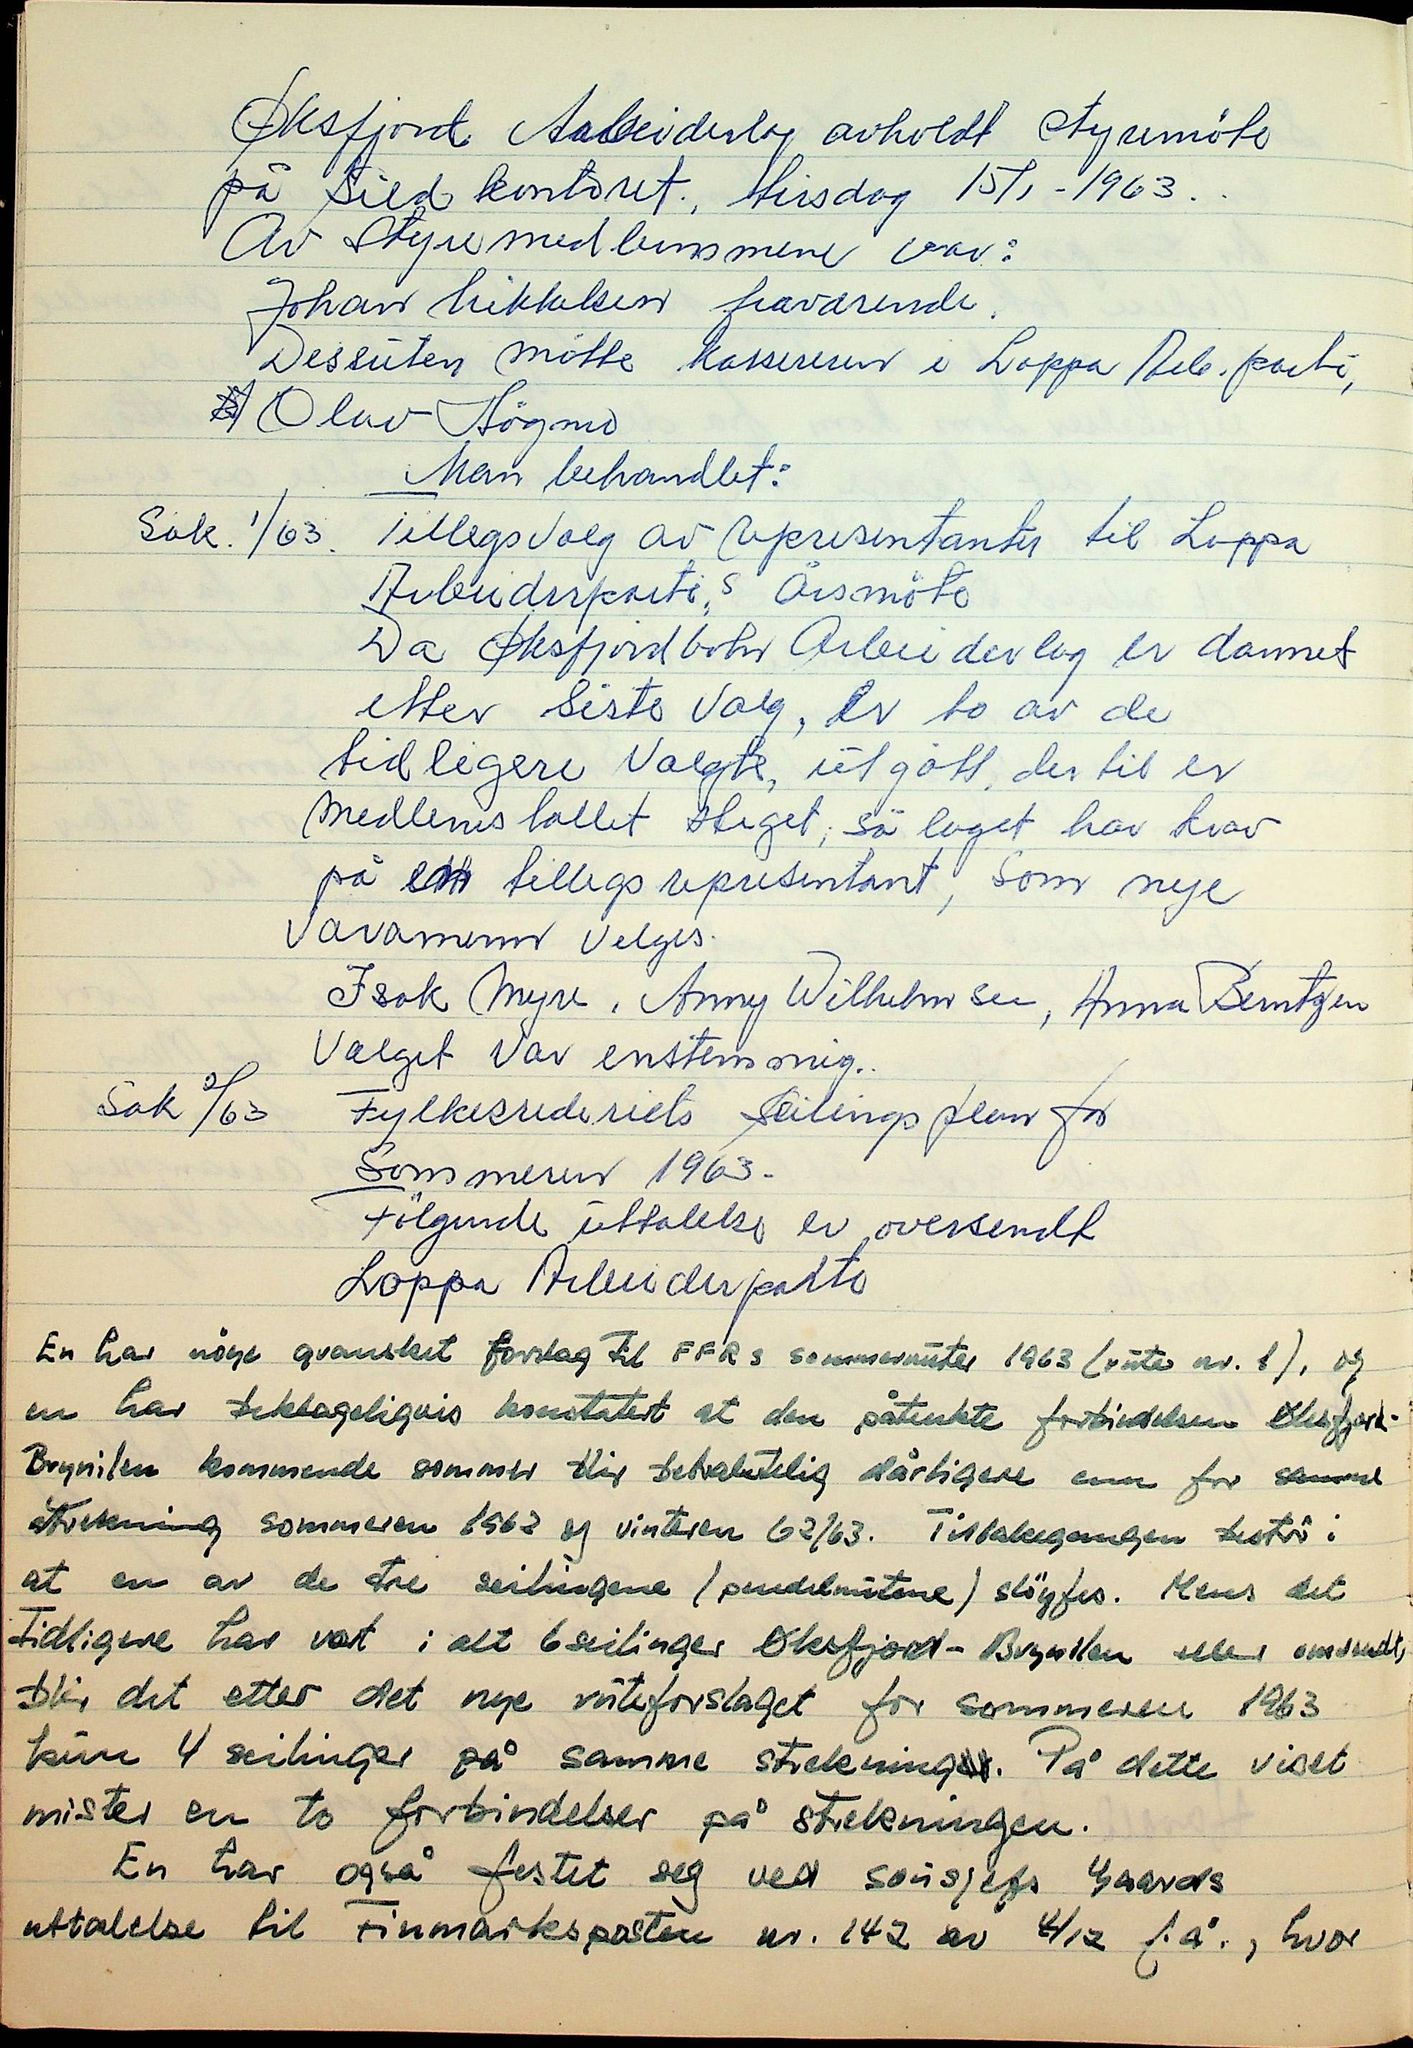 Øksfjord Aabeiderlag avholdt styremöte
på Sildkontoret., tirsdag 15/1 - 1963.
Av styremedlemmene var:
Johan Mikkelsen fraværende.
Dessüten mötte kassereren i Loppa Arb. parti,
Olav Högmo
Man behandlet:
Sak. 1/63. Tillegsvalg av representanter til Loppa
Arbeiderparti,s Årsmöte
Da Øksfjordbotn Arbeiderlag er dannet
etter siste Valg, er to av de
tidligere Valgte, ütgått, der til er
medlemstallet steget, så laget har krav
på en tillegsrepresentant, Som nye
Varamenn velges.
Isak Myre, Anny Wilhelmsen, Anna Berntzen
Valget var enstemmig..
Sak 2/63 Fylkesrederiets Seilingsplan for
Sommeren 1963.
Fölgende üttalelse er oversendt
Loppa Arbeiderparti
En har nöye gransket forslag til FFRs sommerrüter 1963 (rüte nr. 1), og
en har beklageligvis konstatert at den påtenkte forbindelsen Øksfjord-
Bognilen kommende sommer blir betraktelig dårligere enn for samme
strekning sommeren 1962 og vinteren 62/63. Tilbakegangen består i
at en av de tre seilingene (pendelrütene) slöyfes. Mens det
tidligere har vært i alt 6 seilinger Øksfjord - Bognilen eller omvendt,
blir det etter det nye rüteforslaget for sommeren 1963
kün 4 seilinger på samme strekning. På dette viset
mister en to forbindelser på strekningen.
En har også festet seg ved sousjefs
uttalelse til Finmarksposten nr. 142 av 4/12 f.å., hvor